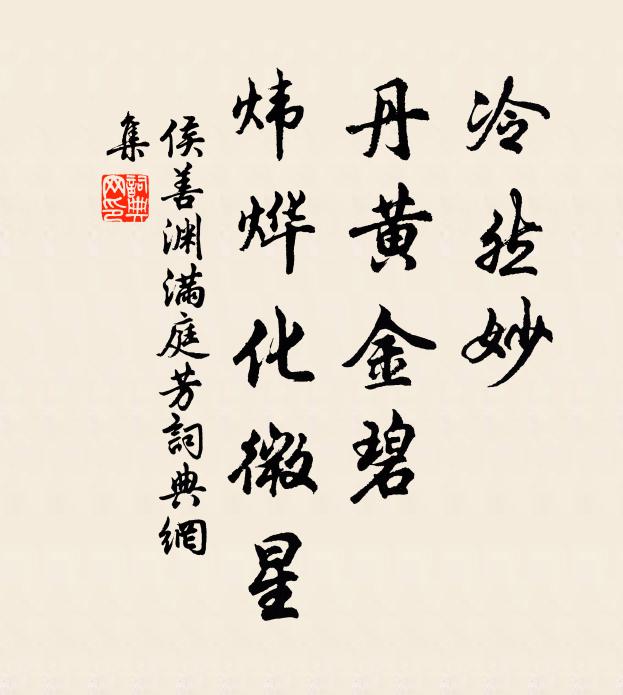 冷然妙
丹黄金碧
炜烨化微星
侯善渊满庭芳詞典網
集
詞典網印